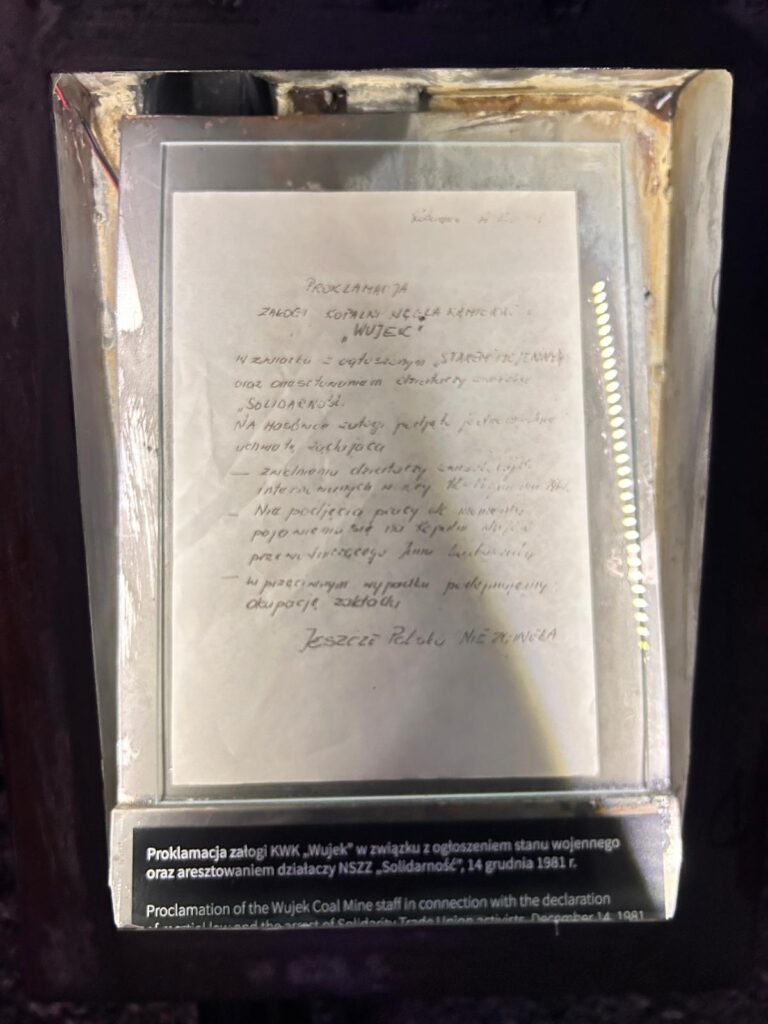 PROKLAMACJA
ZAŁOGI KOPALNI WĘGLA
„WUJEK"
W związku z ogłoszonym „STANEM WOJENNYM
oraz aresztowaniem działaczy
„SOLIDARNOŚĆ.
NA załogi podjęto
uchwałę
— zwolnienia działaczy
internowanych
— Nie podjęcia pracy do momentu
pojawienia się na
przewodniczącego
— w przeciwnym wypadku podejmujemy
okupację zakładu
Jeszcze Polska NIE ZGINĘŁA
Proklamacja załogi KWK „Wujek" w związku z ogłoszeniem stanu wojennego
oraz aresztowaniem działaczy NSZZ „Solidarność", 14 grudnia 1981 r.
Proclamation of the Wujek Coal Mine staff in connection with the declaration
of martial law and the arrest of Solidarity Trade Union activists, December 14, 1981